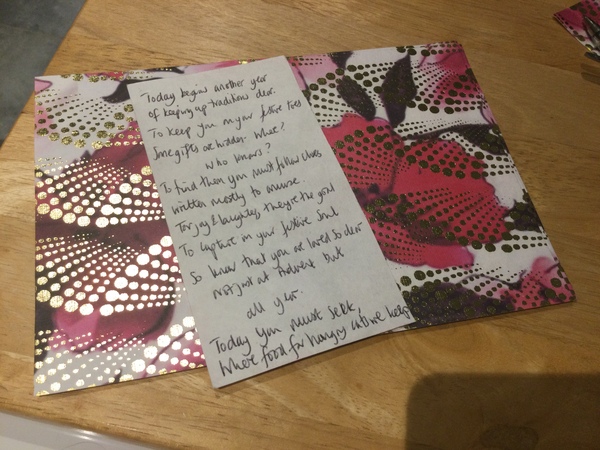 Today begins another year
of keeping up tradition dear.
To keep you on your festive toes
Some gifts are hidden. What?
Who knows?
To find them you must follow clues
written mostly to amuse.
For joy & laughter, they're the goal
To capture in your festive soul
So know that you are loved so dear
not just at Advent but
all year.
Today you must seek,
Where food for hungry